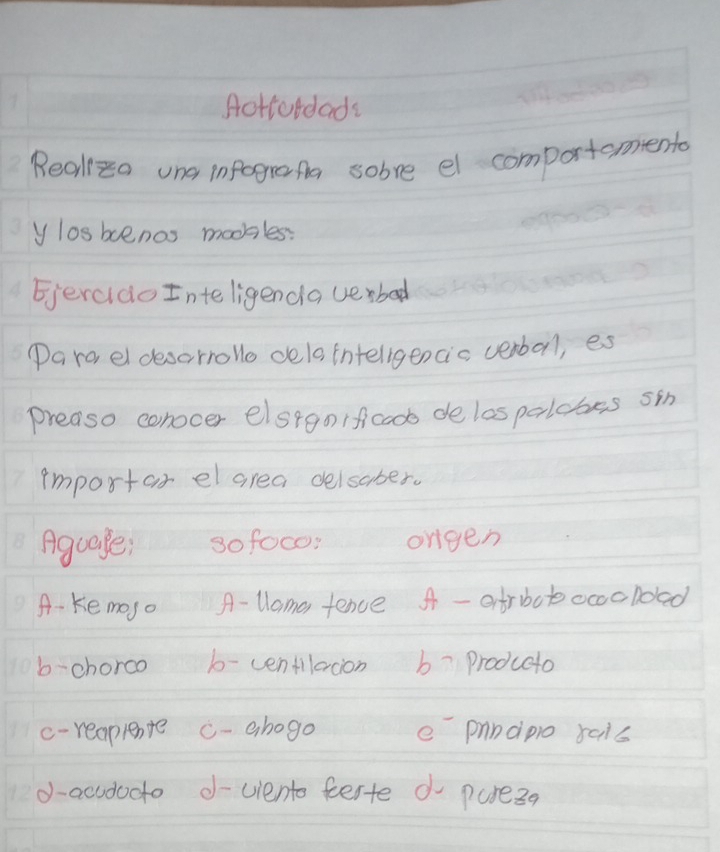 Actividad:
Realiza una infografia sobre el comportamiento
y los buenos modales:
Ejercicio Inteligencia verbal
Para el desarrollo de la inteligencia verbal, es
preciso conocer el significado de las palabras sin
importar el area del saber.
Aguaje: sofoco: origen
A- Remojo A- llama tenue A - atributo o cualidad
b- charco b- ventilacion b- Producto
c- recipiente c- ahogo c- principio raiz
d- acuducto d- viento fuerte d- pureza